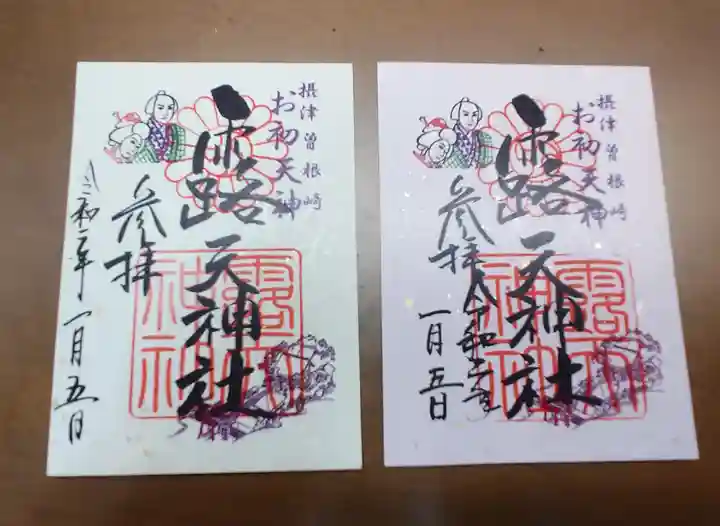 摂津曽根崎
お初天神
露天神社
参拝
令和二年一月五日
露天神社
摂津曽根崎
お初天神
露天神社
参拝
令和二年
一月五日
露天神社